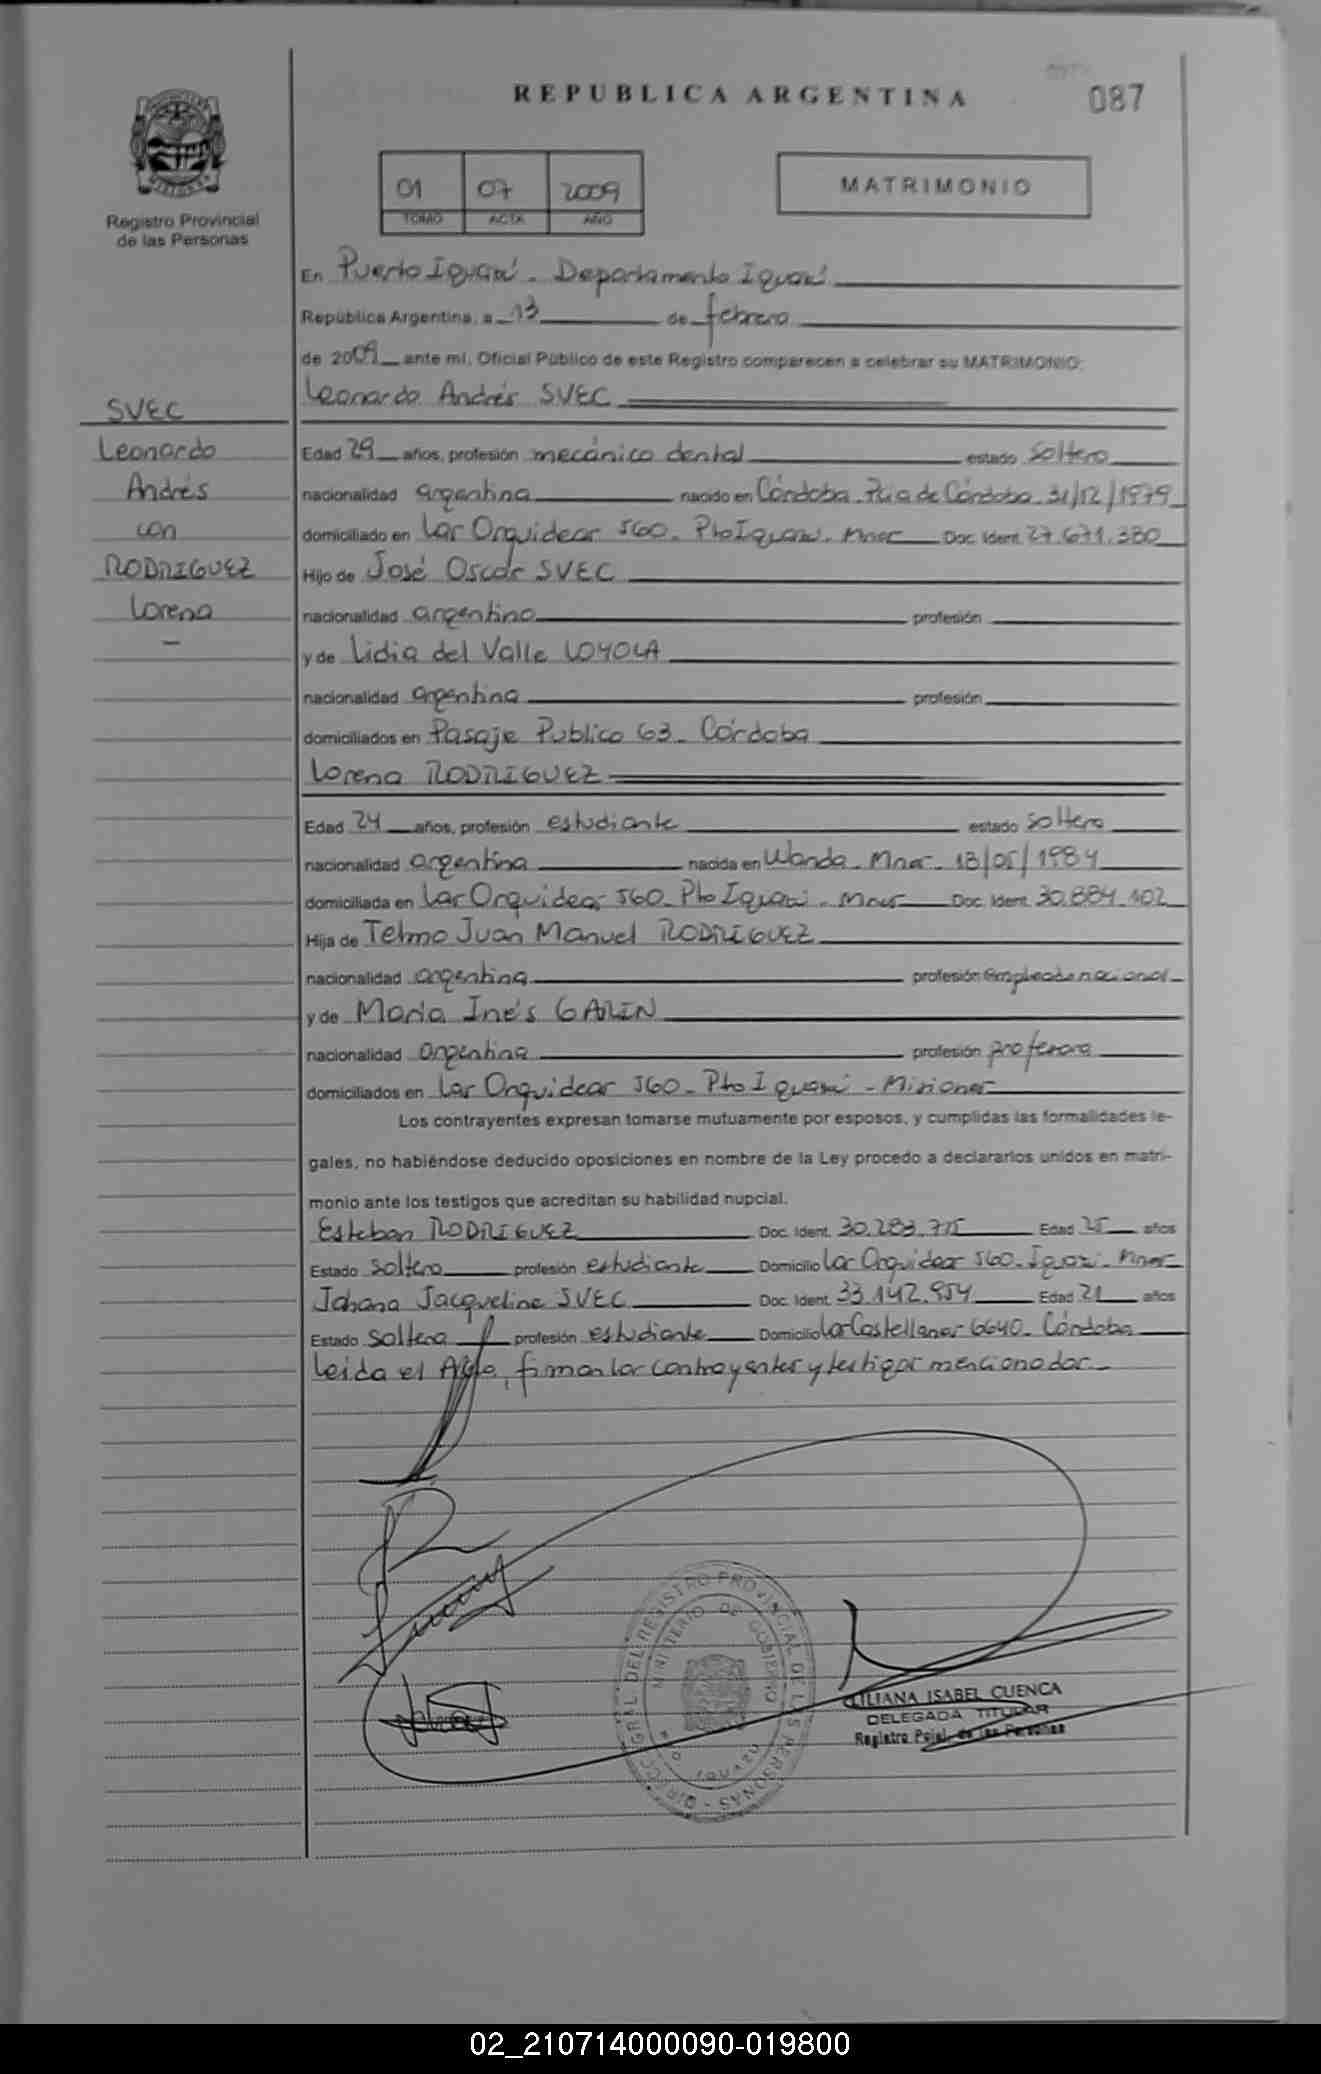 REPUBLICA ARGENTINA
087
Registro Provincial
de las Personas
01 07 2009
TOMO ACTA AÑO
MATRIMONIO
En Puerto Iguazú - Departamento Iguazú
República Argentina, a 13 de febrero
de 2009 ante mi, Oficial Público de este Registro comparecen a celebrar su MATRIMONIO:
Leonardo Andrés SVEC
SVEC
Leonardo
Andrés
con
RODRIGUEZ
Lorena
Edad 29 años, profesión mecánico dental estado soltero
nacionalidad argentina nacido en Córdoba - Pcia de Córdoba - 31/12/1979
domiciliado en Las Orquideas 560 - Pto Iguazú - Mnes Doc. Ident. 27.671.380
Hijo de José Oscar SVEC
nacionalidad argentino profesión
y de Lidia del Valle LOYOLA
nacionalidad argentina profesión
domiciliados en Pasaje Publico 63 - Córdoba
Lorena RODRIGUEZ
Edad 24 años, profesión estudiante estado soltera
nacionalidad argentina nacida en Wanda - Mnes - 18/05/1984
domiciliada en Las Orquideas 560 - Pto Iguazú - Mnes Doc. Ident. 30.884.102
Hija de Telmo Juan Manuel RODRIGUEZ
nacionalidad argentina profesión empleado nacional
y de María Inés GARIN
nacionalidad argentina profesión profesora
domiciliados en Las Orquideas 560 - Pto Iguazú - Misiones
Los contrayentes expresan tomarse mutuamente por esposos, y cumplidas las formalidades le-
gales, no habiéndose deducido oposiciones en nombre de la Ley procedo a declararlos unidos en matri-
monio ante los testigos que acreditan su habilidad nupcial.
Esteban RODRIGUEZ Doc. Ident. 30.283.775 Edad 25 años
Estado soltero profesión estudiante Domicilio Las Orquideas 560 - Iguazú - Mnes
Johana Jacqueline SVEC Doc. Ident. 33.142.954 Edad 21 años
Estado soltera profesión estudiante Domicilio Los Castellanos 6640 - Córdoba
Leída el Acta, firman los contrayentes y testigos mencionados -
DIRECC. GRAL. DEL REGISTRO PROVINCIAL DE LAS PERSONAS
MINISTERIO DE GOBIERNO
LILIANA ISABEL CUENCA
DELEGADA TITULAR
Registro Pcial. de las Personas
02_210714000090-019800